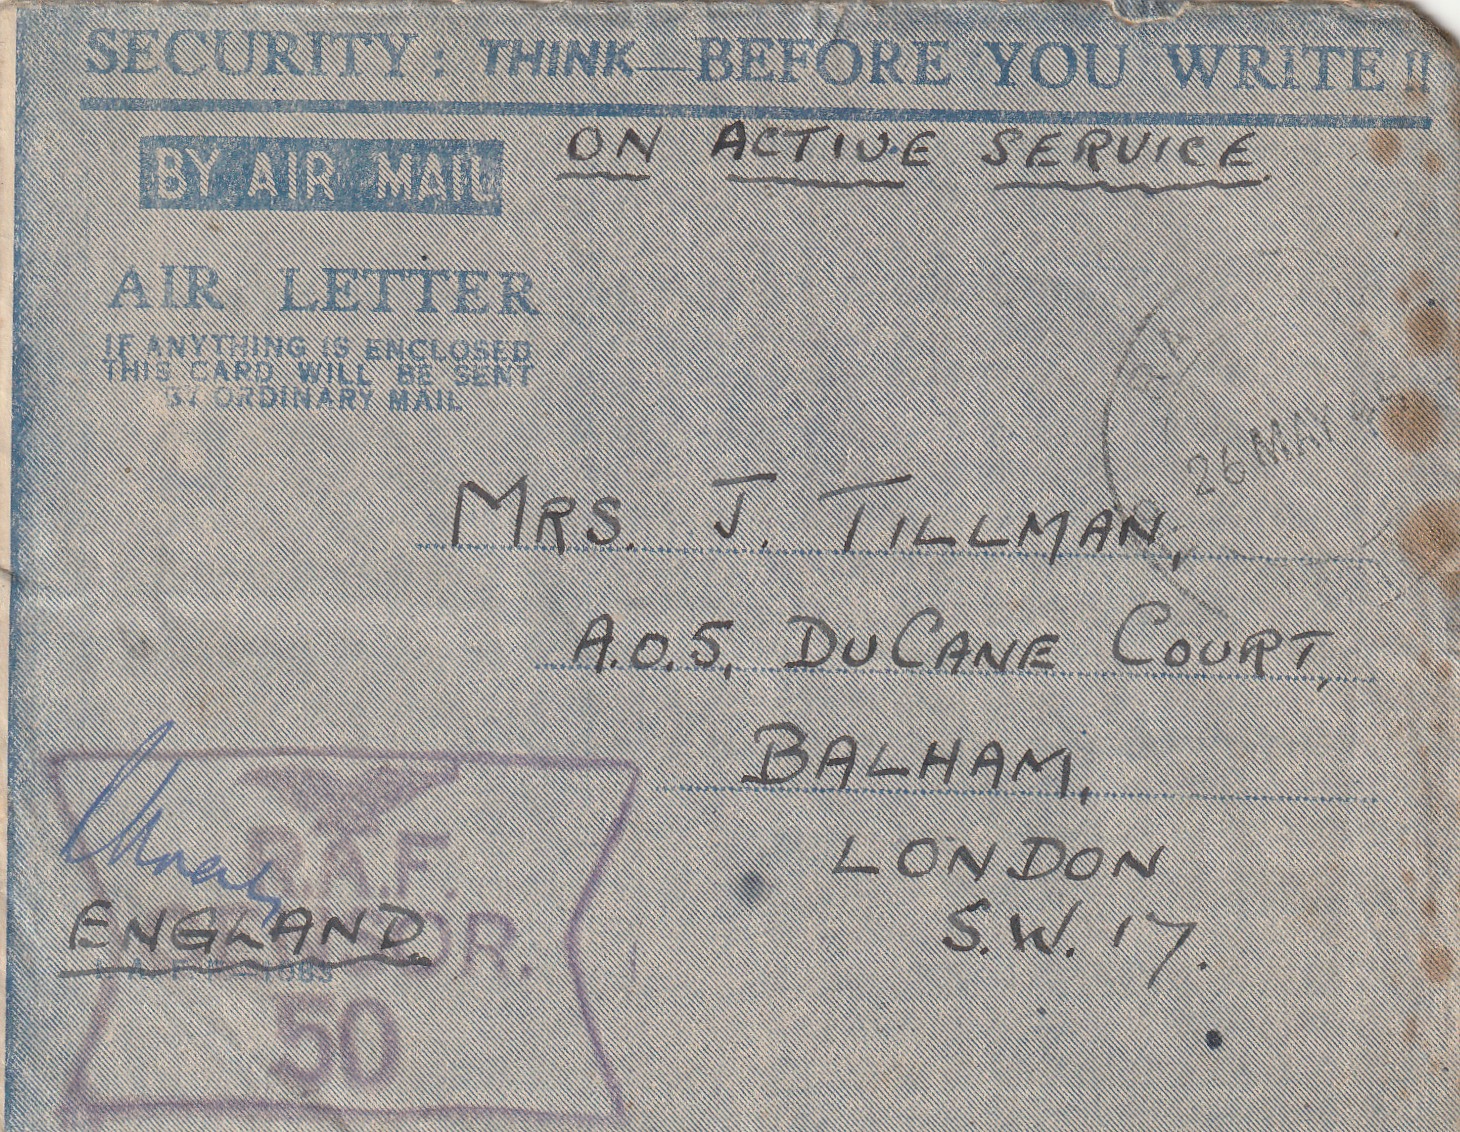 SECURITY: THINK—BEFORE YOU WRITE!!
BY AIR MAIL
ON ACTIVE SERVICE
AIR LETTER
IF ANYTHING IS ENCLOSED
THIS CARD WILL BE SENT
BY ORDINARY MAIL
26 MAY
MRS. J. TILLMAN,
A.O.5, DUCANE COURT,
BALHAM,
LONDON
S.W. 17.
R.A.F.
ENGLAND
50